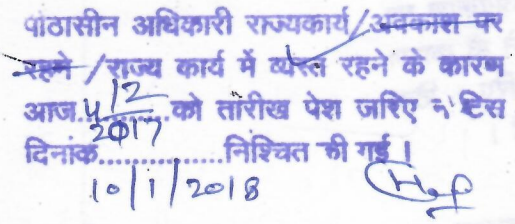 पीठासीन अधिकारी राज्यकार्य/अवकाश पर
रहने/राज्य कार्य में व्यस्त रहने के कारण
आज 4/12/2017 को तारीख पेश जरिए नोटिस
दिनांक...............निश्चित की गई।
10/1/2018